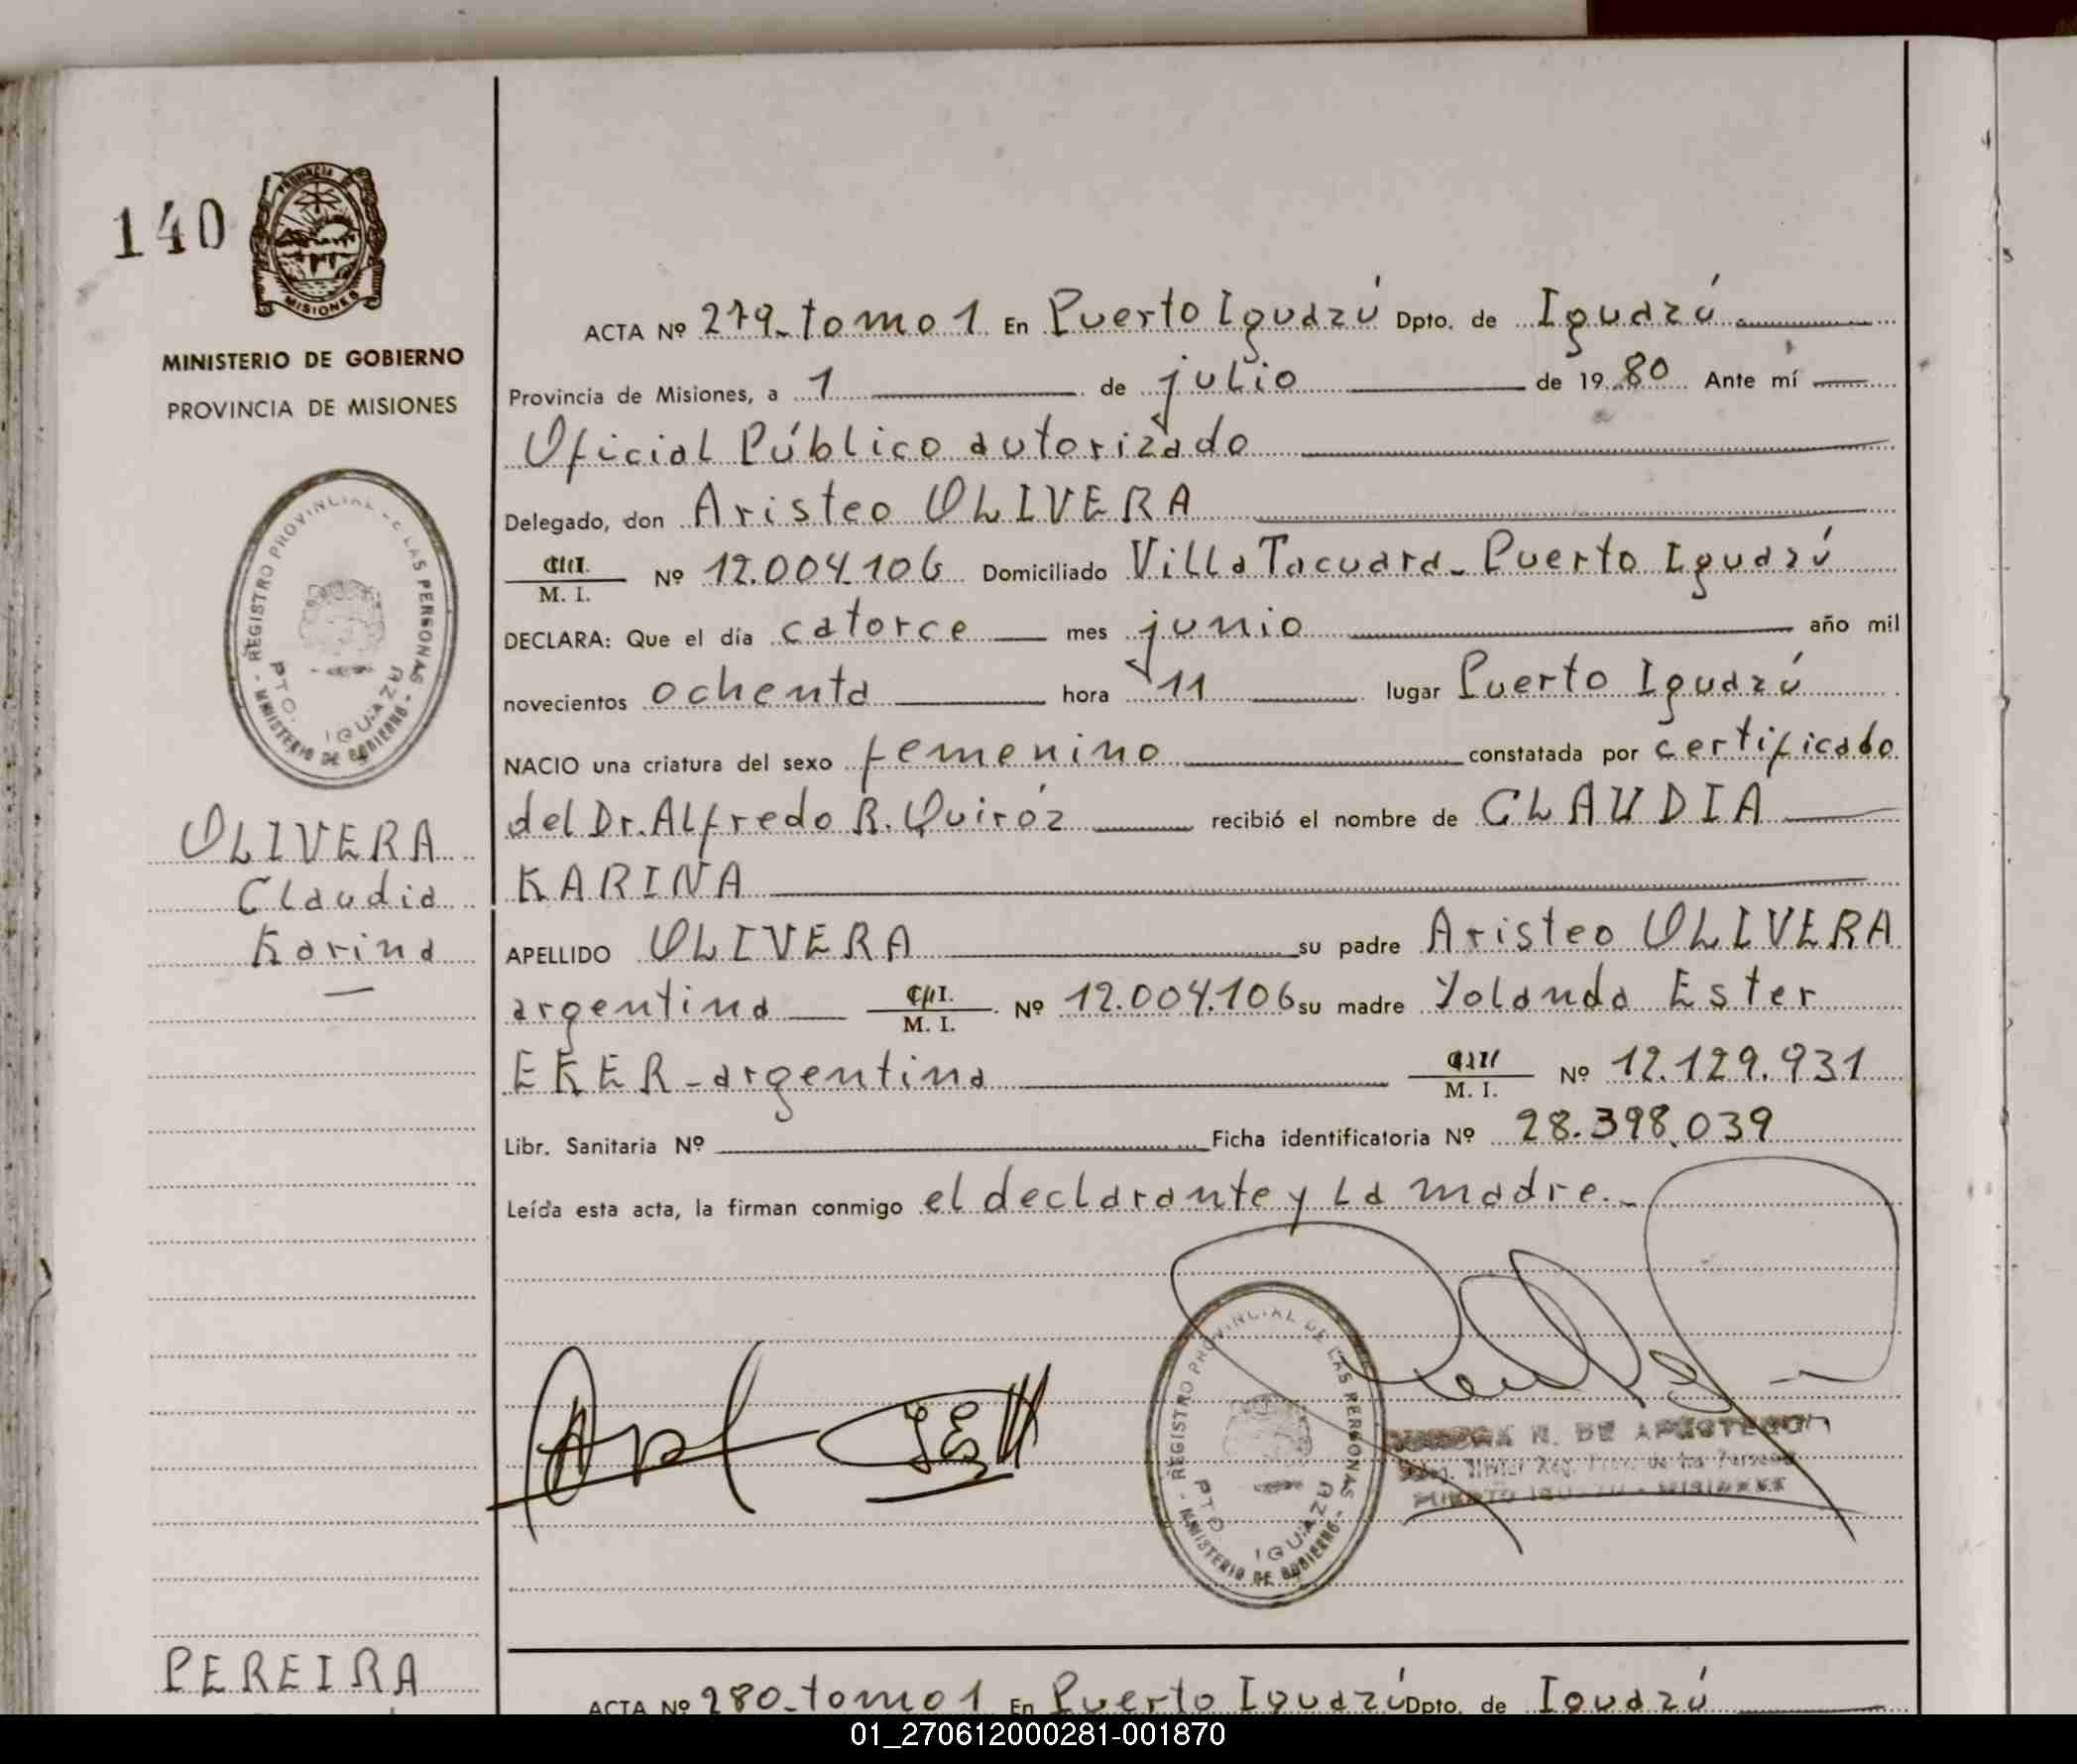 140
PROVINCIA DE
MISIONES
MINISTERIO DE GOBIERNO
PROVINCIA DE MISIONES
REGISTRO PROVINCIAL DE LAS PERSONAS
PTO. IGUAZU
MINISTERIO DE GOBIERNO
OLIVERA
Claudia
Karina
ACTA Nº 279-tomo 1 En Puerto Iguazú Dpto. de Iguazú
Provincia de Misiones, a 1 de julio de 1980 Ante mí
Oficial Público autorizado
Delegado, don Aristeo OLIVERA
M. I. Nº 12.004.106 Domiciliado Villa Tacuara - Puerto Iguazú
DECLARA: Que el día catorce mes junio año mil
novecientos ochenta hora 11 lugar Puerto Iguazú
NACIO una criatura del sexo femenino constatada por certificado
del Dr. Alfredo R. Quiróz recibió el nombre de CLAUDIA
KARINA
APELLIDO OLIVERA su padre Aristeo OLIVERA
argentina M. I. Nº 12.004.106 su madre Yolanda Ester
EKER - argentina M. I. Nº 12.129.931
Libr. Sanitaria Nº Ficha identificatoria Nº 28.398.039
Leída esta acta, la firman conmigo el declarante y la madre.-
REGISTRO PROVINCIAL DE LAS PERSONAS
PTO IGUAZU
MINISTERIO DE GOBIERNO
N. DE
PUERTO IGUAZU - MISIONES
PEREIRA
ACTA Nº 280-tomo 1 En Puerto Iguazú Dpto. de Iguazú
01_270612000281-001870